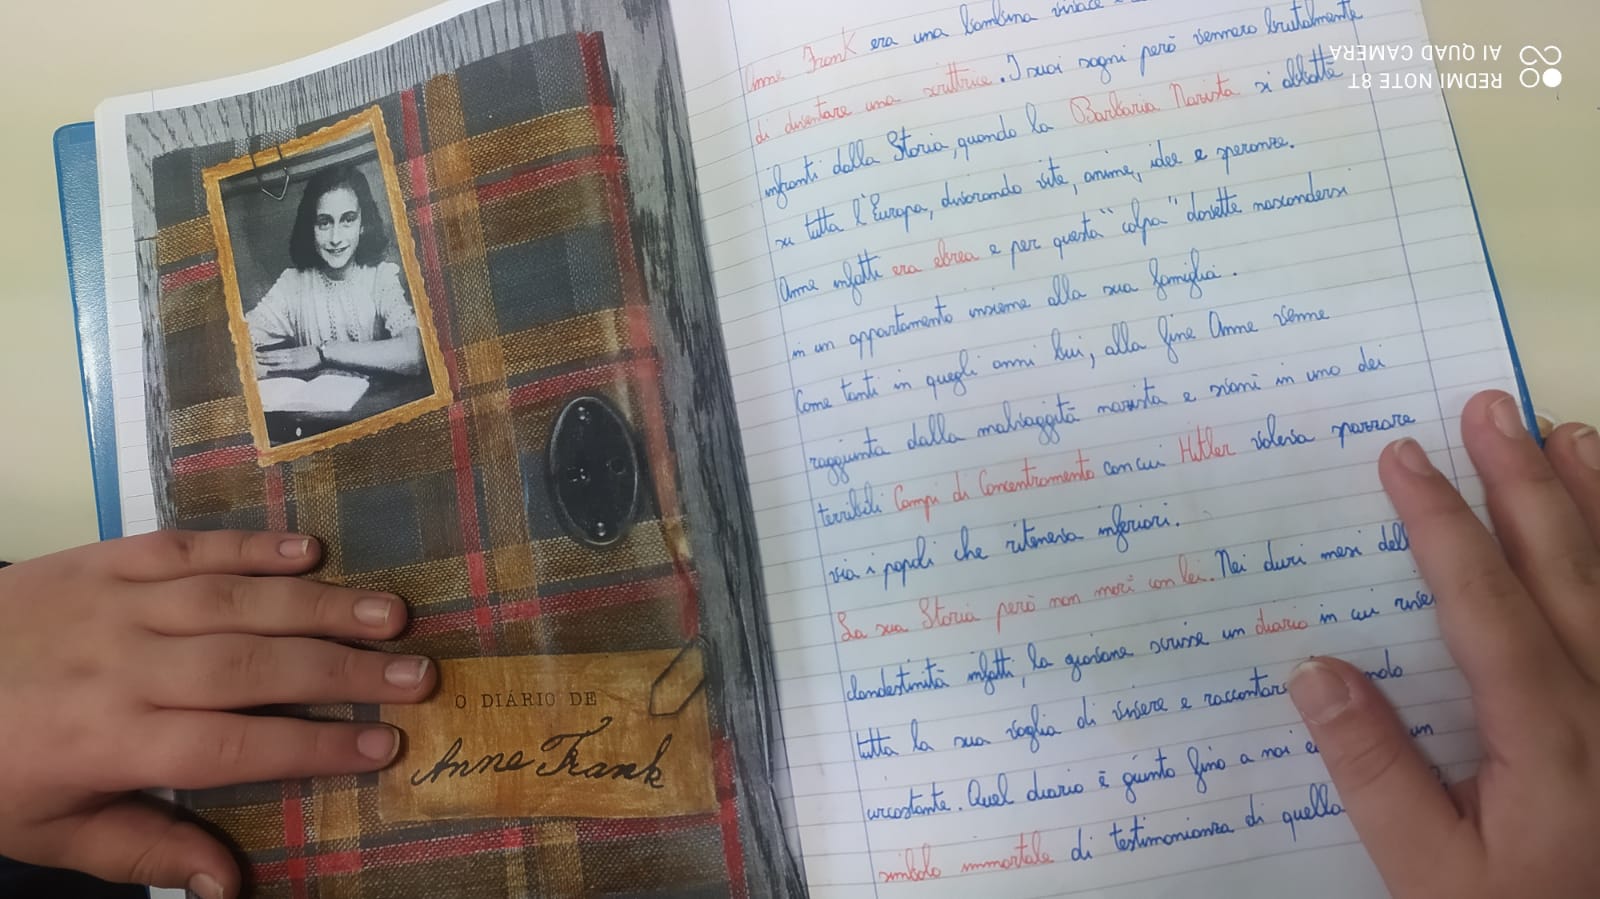 O DIÁRIO DE
Anne Frank
Anne Frank era una bambina vivace
di diventare una scrittrice. I suoi sogni però vennero brutalmente
infranti dalla Storia, quando la Barbaria Nazista si abbatté
su tutta l'Europa, divorando vite, anime, idee e speranze.
Anne infatti era ebrea e per questa "colpa" dovette nascondersi
in un appartamento insieme alla sua famiglia.
Come tanti in quegli anni bui, alla fine Anne venne
raggiunta dalla malvaggità nazista e svanì in uno dei
terribili Campi di Concentramento con cui Hitler voleva spazzare
via i popoli che riteneva inferiori.
La sua Storia però non morì con lei. Nei duri mesi dell
clandestinità infatti, la giovane scrisse un diario in cui river
tutta la sua voglia di vivere e raccontare ndo
circostante. Quel diario è giunto fino a noi e un
simbolo immortale di testimonianza di quella
REDMI NOTE 8T
AI QUAD CAMERA